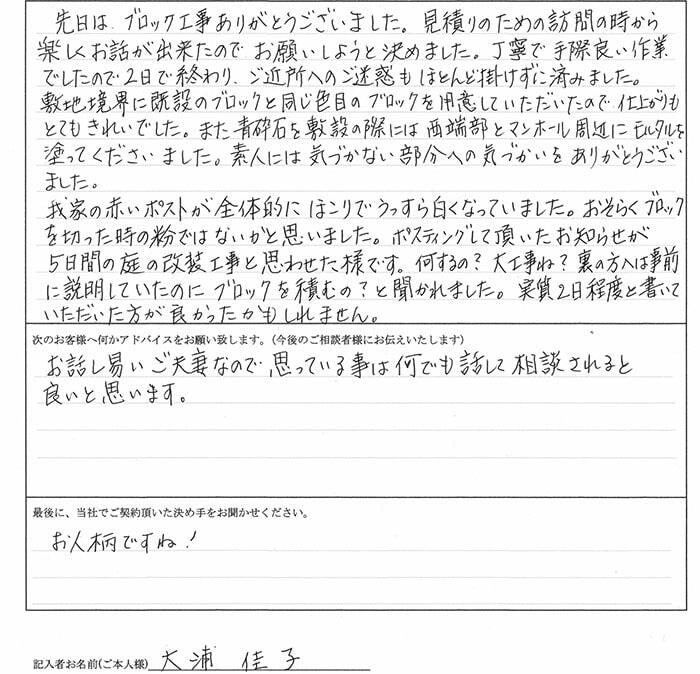 先日は、ブロック工事ありがとうございました。見積りのための訪問の時から
楽しくお話が出来たので お願いしようと決めました。丁寧で手際良い作業
でしたので2日で終わり、ご近所へのご迷惑も ほとんど掛けずに済みました。
敷地境界に既設のブロックと同じ色目のブロックを用意していただいたので仕上がりも
とてもきれいでした。また青砕石を敷設の際には西端部とマンホール周辺にモルタルを
塗ってくださいました。素人には気づかない部分への気づかいをありがとうござい
ました。
我家の赤いポストが全体的にほこりでうっすら白くなっていました。おそらくブロック
を切った時の粉ではないかと思いました。ポスティングして頂いたお知らせが
5日間の庭の改装工事と思わせた様です。何するの?大工事ね?裏の方へは事前
に説明していたのに ブロックを積むの?と聞かれました。実質2日程度と書いて
いただいた方が良かったかもしれません。
次のお客様へ何かアドバイスをお願い致します。(今後のご相談者様にお伝えいたします)
お話し易いご夫妻なので、思っている事は何でも話して相談されると
良いと思います。
最後に、当社でご契約頂いた決め手をお聞かせください。
お人柄ですね!
記入者お名前(ご本人様) 大浦 佳子